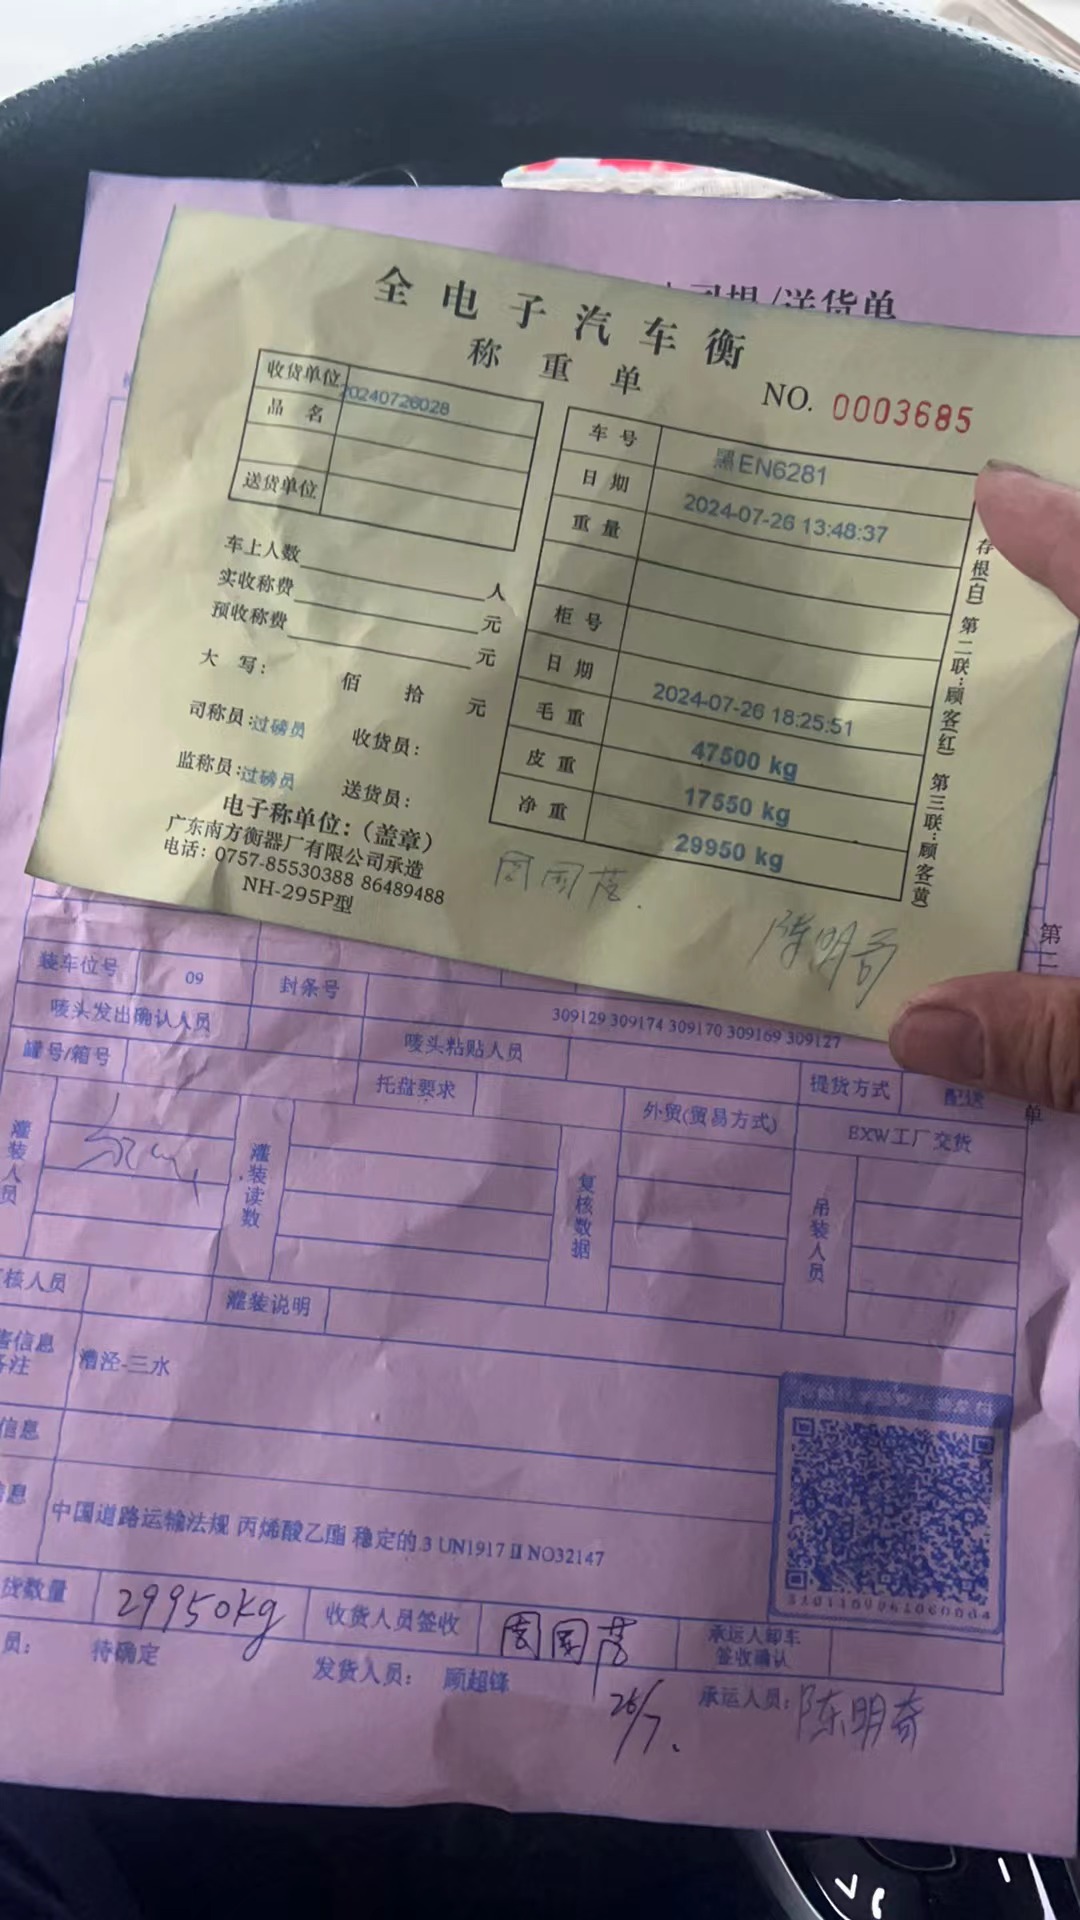 送货单
全电子汽车衡
称重单
NO. 0003685
收货单位
20240726028
品名
送货单位
车上人数 人
实收称费 元
预收称费 元
大写： 佰 拾 元
司称员:过磅员 收货员：
监称员:过磅员 送货员：
电子称单位：（盖章）
广东南方衡器厂有限公司承造
电话：0757-85530388 86489488
NH-295P型
车号 黑EN6281
日期 2024-07-26 13:48:37
重量
柜号
日期 2024-07-26 18:25:51
毛重 47500 kg
皮重 17550 kg
净重 29950 kg
存根(白) 第二联:顾客(红) 第三联:顾客(黄)
陈明奇
第二
单
装车位号 09 封条号 309129 309174 309170 309169 309127
唛头发出确认人员 唛头粘贴人员
罐号/箱号 托盘要求 提货方式 配送
外贸(贸易方式) EXW工厂交货
灌装人员 灌装读数 复核数据 吊装人员
核人员 灌装说明
信息
备注 漕泾-三水
信息
信息 中国道路运输法规 丙烯酸乙酯 稳定的 3 UN1917 II NO32147
货数量 29950kg 收货人员签收 承运人卸车签收确认
员： 待确定 发货人员： 顾超锋 承运人员： 陈明奇
26/7.